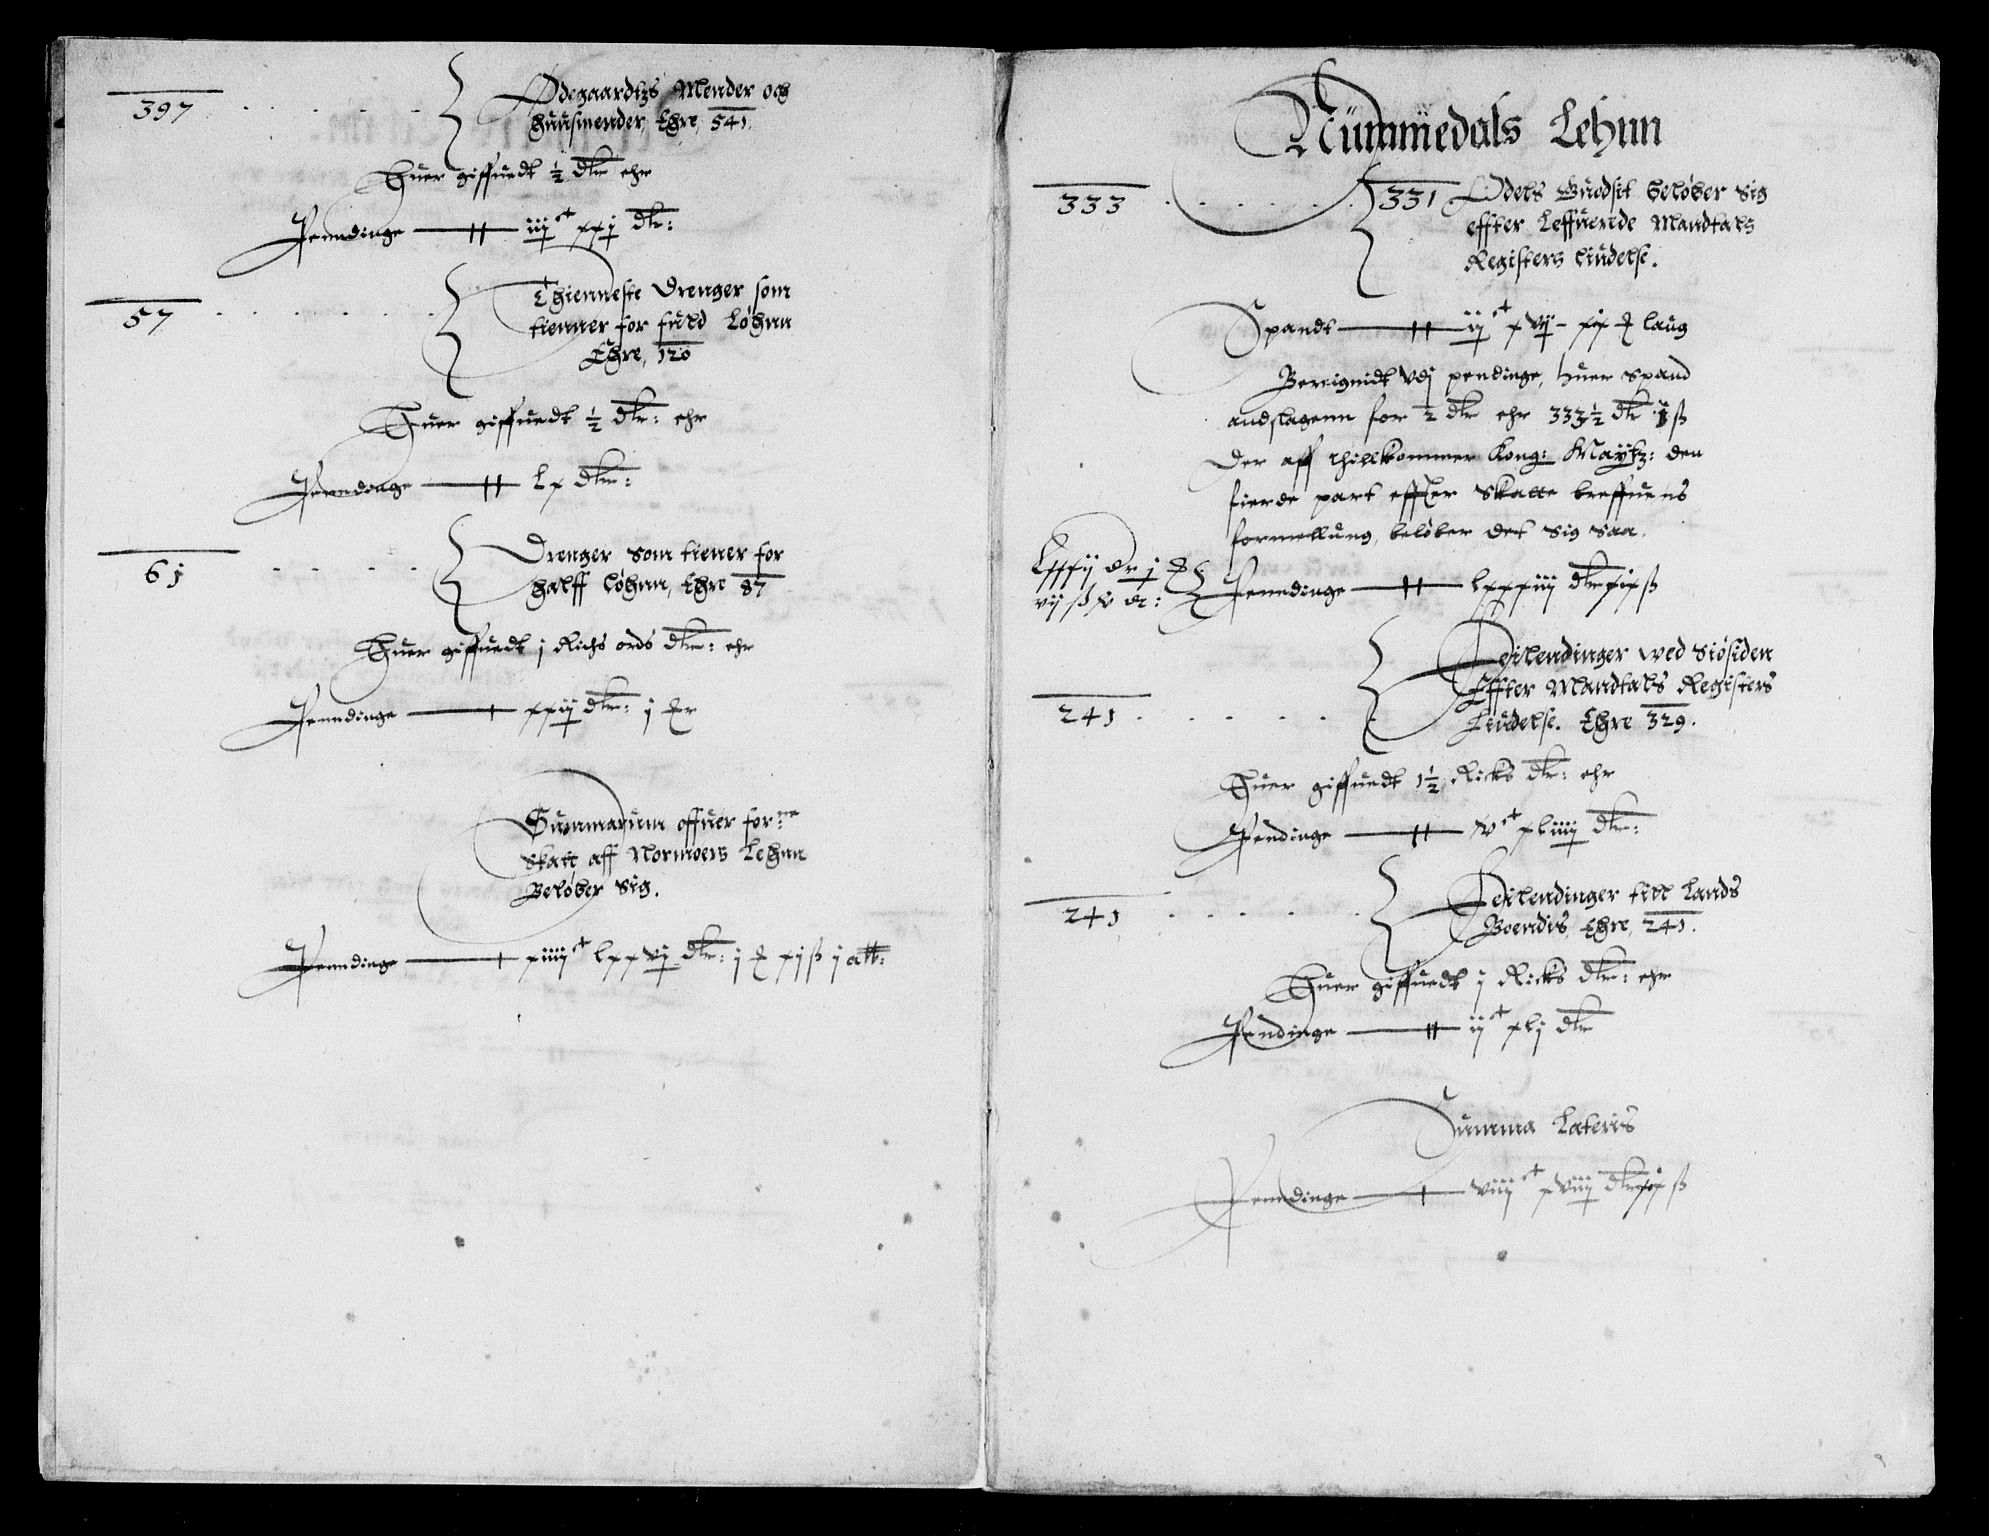 397 . . . . . Ødegaardtzs Mender och
huusmender, Ehre, 541.
Huer giffuedt ½ dlr ehr
Penndinge iijᶜ xxj dlr:
57 . . . . . . Thienneste Drenger som
tienner for fuld Løhnn
Ehre, 120
Huer giffuedt ½ dlr: ehr
Penndinge lx dlr:
61 . . . . Drenger som tiener for
halff løhnn, Ehre 87
Huer giffuedt j Richs ords dlr: ehr
Penndinge xxij dlr: j
Summarum offuer for:ne
Skatt aff Normørs Lehnn
Beløber sig.
Penndinge xiiijᶜ lxxvj dlr: j xj ß j alb:
Nümmedals Lehnn
333 . . . . . . 331 Odels Guodsit beløber sig
effter Leffuerede Mandtals
Registers liudelse.
Spandt laug
Bereignidt vdj pendinge, huer spand
andslagenn for ½ dlr ehr 333½ dlr ß
Der aff thillkommer Kong: Maytz: den
fierde part effter Skatte breffuens
formelling, beløber det sig saa.
Penndinge lxxxiij dlr xix ß
241 . . . . . . Leilendinger wed Siøsiden
Effter Mandtals Registers
Liudelse. Ehre 329.
Huer giffuedt 1½ Ricks dlr: ehr
Pendinge xliiij dlr:
241 . . . . . . Leilendinger till Lands
Boendis, Ehre, 241.
Huer giffuedt j Ricks dlr: ehr
Pendinge ijᶜ xlj dlr
Summa Lateris
Penndinge viijᶜ xviij dlr xix ß